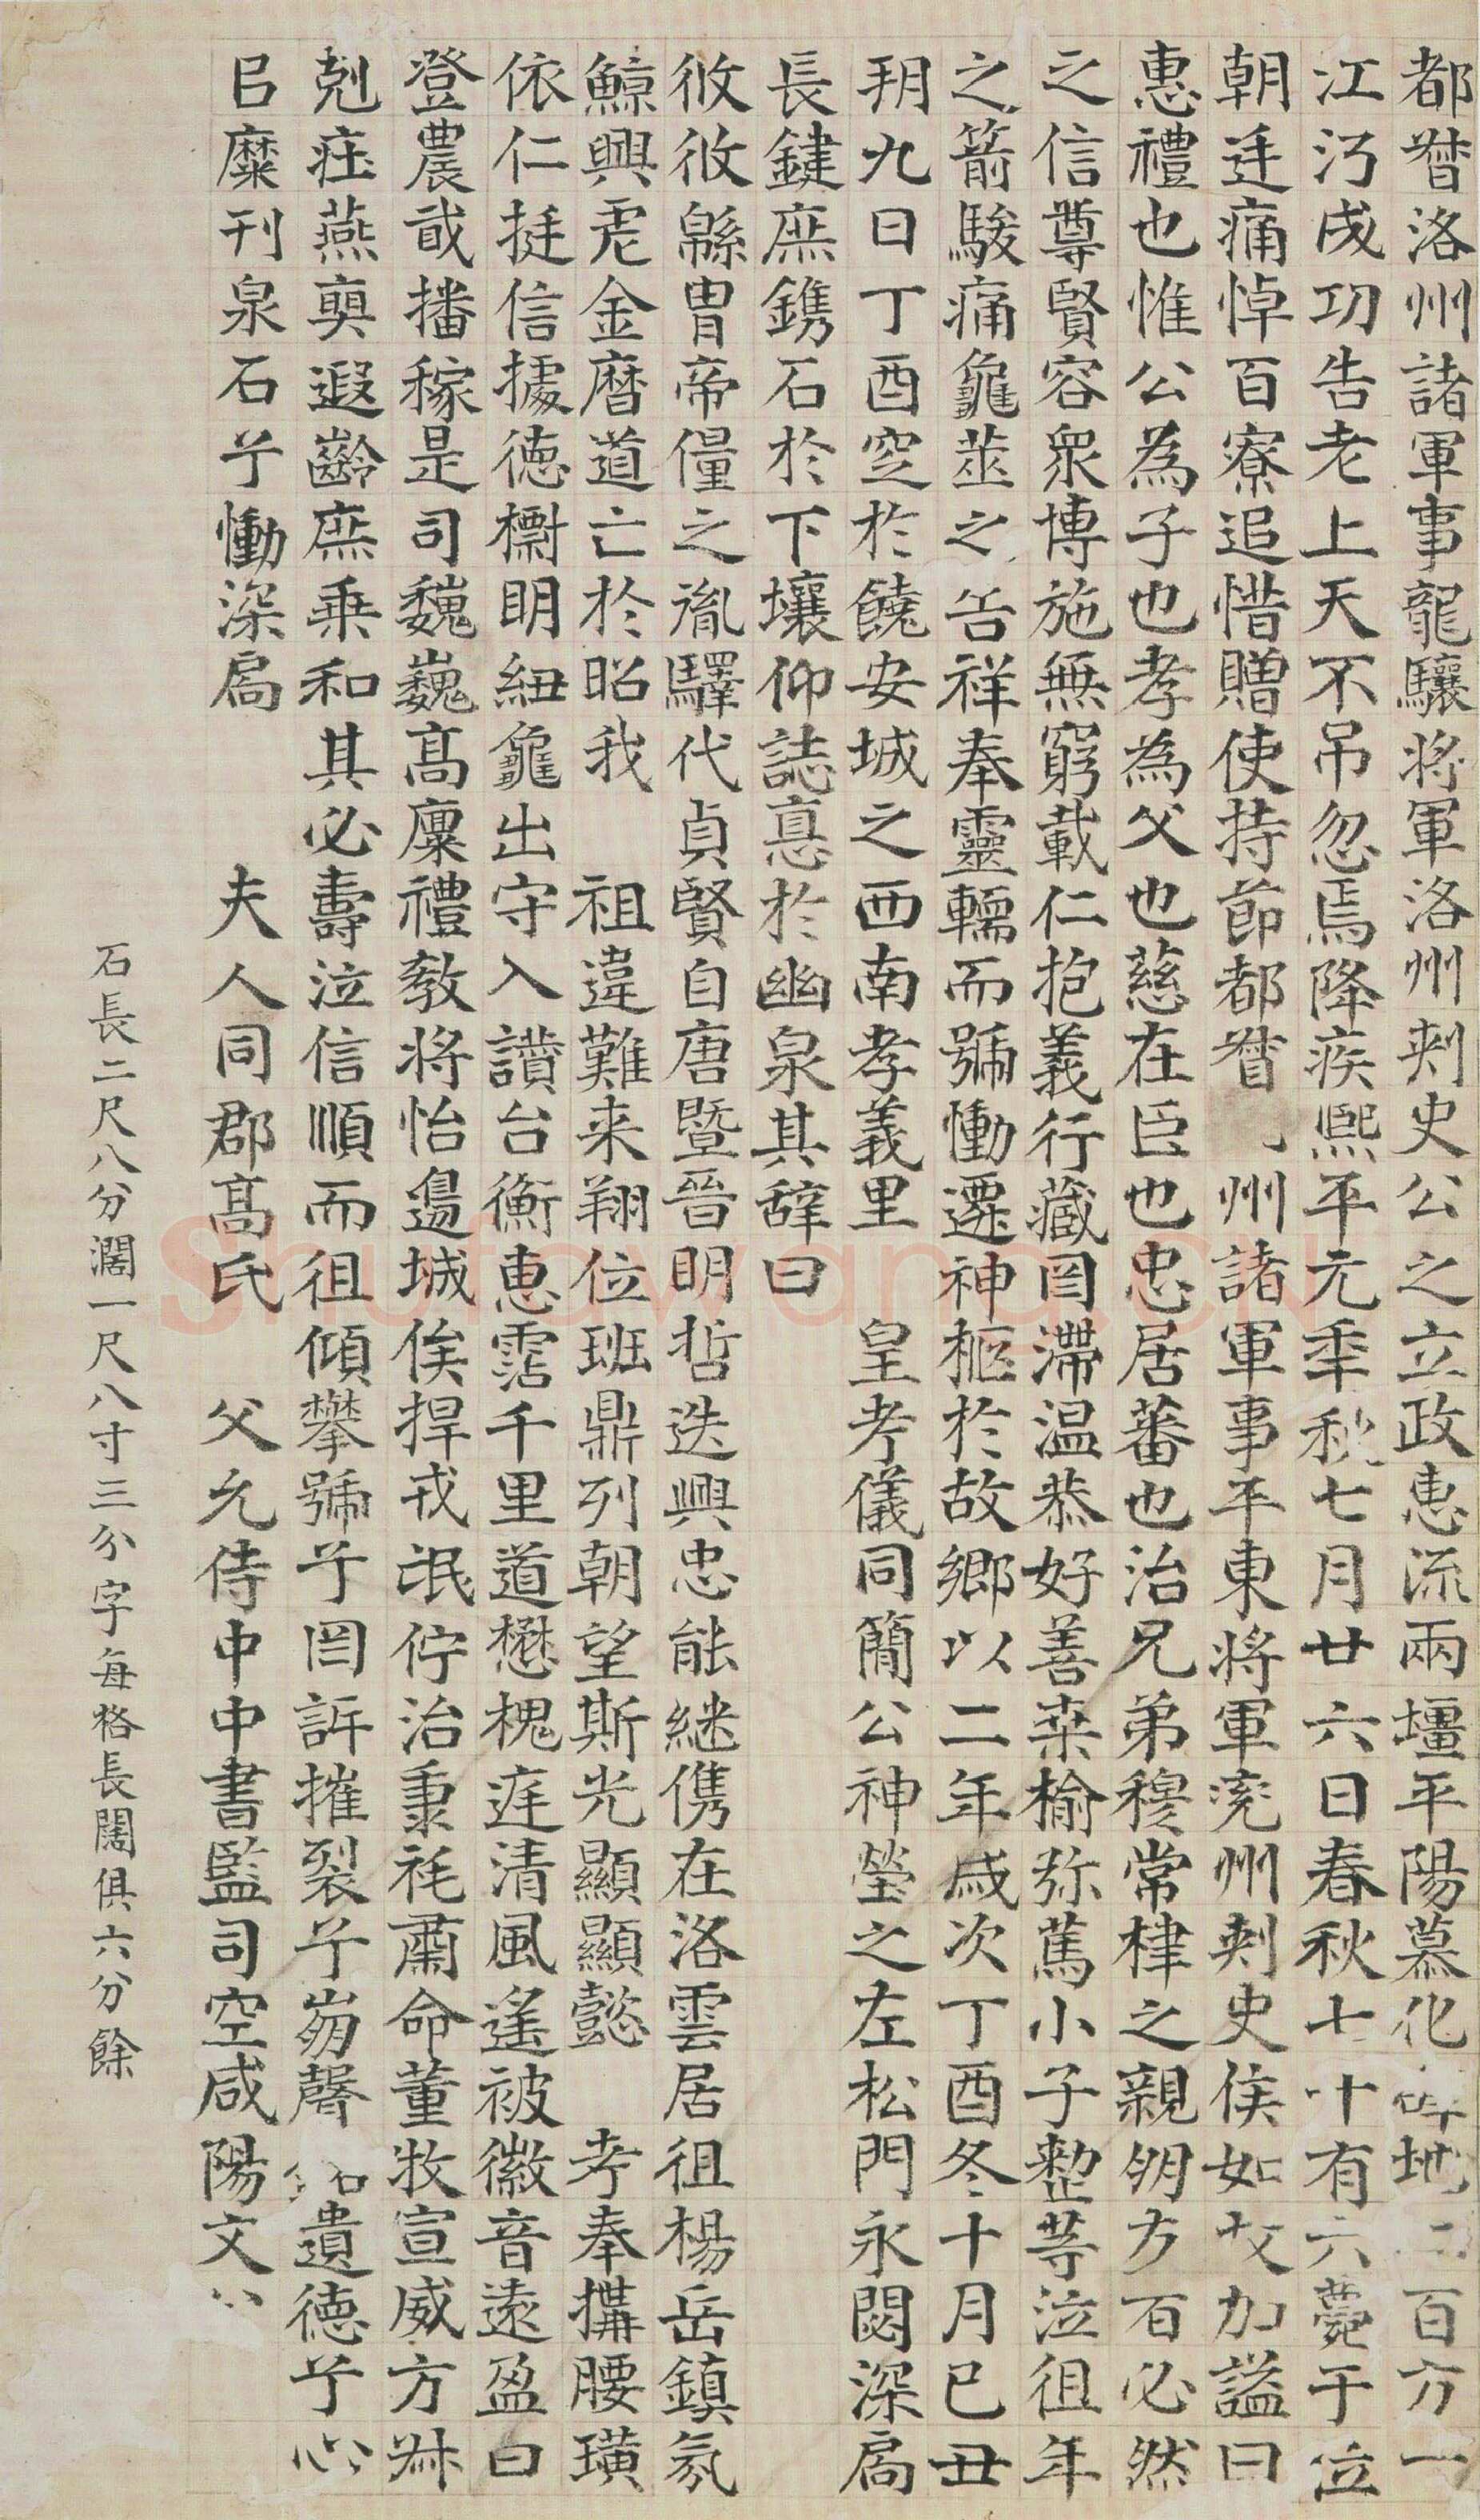 都督洛州諸軍事龍驤將軍洛州刾史公之立政惠流兩壃平陽慕化 地二百方一
江沔成功告老上天不吊忽焉降疾熙平元秊秋七月廿六日春秋七十有六薨于位
朝廷痛悼百寮追惜贈使持節都督 州諸軍事平東將軍兖州刾史侯如故加謚曰
惠禮也惟公為子也孝為父也慈在臣也忠居蕃也治兄弟穆常棣之親朋友百必然
之信尊賢容衆博施無窮載仁抱義行藏罔滯温恭好善桒榆弥篤小子整等泣徂年
之箭駿痛龜莁之告祥奉靈轜而號慟遷神柩於故鄉以二年歲次丁酉冬十月已丑
玥九日丁酉窆於饒安城之西南孝義里 皇考儀同簡公神塋之左松門永閟深扃
長鍵庶鐫石於下壤仰誌惪於幽泉其辞曰
攸攸緜胄帝僮之胤驛代貞賢自唐暨晉明哲迭興忠能継儁在洛雲居徂楊岳鎮氛
鯨興虎金曆道亡於昭我 祖違難来翔位班鼎列朝望斯光顯顯懿 考奉搆腰璜
依仁挺信據德檦明紐龜出守入讃台衡惠霑千里道懋槐庭清風遙被徽音遠盈曰
登農戓播稼是司魏巍髙廩禮教將怡邊城俟捍戎氓佇治秉旄肅命董牧宣威方牀
剋症燕奭遐齡庶乗和其必壽泣信順而徂傾攀號兮罔訴摧裂兮崩聲 遺德兮心
㠯糜刊泉石兮慟深扃 夫人同郡髙氏 父允侍中中書監司空咸陽文公
石長二尺八分濶一尺八寸三分字每格長闊俱六分餘